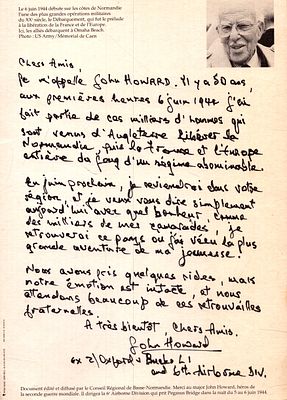 Le 6 juin 1944 débute sur les côtes de Normandie
l'une des plus grandes opérations militaires
du XXe siècle, le Débarquement, qui fut le prélude
à la libération de la France et de l'Europe.
Ici, les alliés débarquent à Omaha Beach.
Photo : US Army / Mémorial de Caen
Chers Amis,
Je m'appelle John HOWARD. Il y a 50 ans,
aux premières heures 6 juin 1944 j'ai
fait partie de ces milliers d'hommes qui
sont venus d'Angleterre libérer la
Normandie, puis la France et l'Europe
entière du joug d'un régime abominable.
En juin prochain, je reviendrai dans votre
région et je veux vous dire simplement
aujourd'hui avec quel bonheur, comme
des milliers de mes camarades, je
retrouverai ce pays où j'ai vécu la plus
grande aventure de ma jeunesse!
Nous avons pris quelques rides, mais
notre émotion est intacte, et nous
attendons beaucoup de ces retrouvailles
fraternelles.
A très bientôt, Chers Amis.
John Howard
ex 2/Oxford & Bucks L I
and 6th Airborne DIV.
Document édité et diffusé par le Conseil Régional de Basse-Normandie. Merci au major John Howard, héros de
la seconde guerre mondiale. Il dirigea la 6e Airborne Division qui prit Pegasus Bridge dans la nuit du 5 au 6 juin 1944.